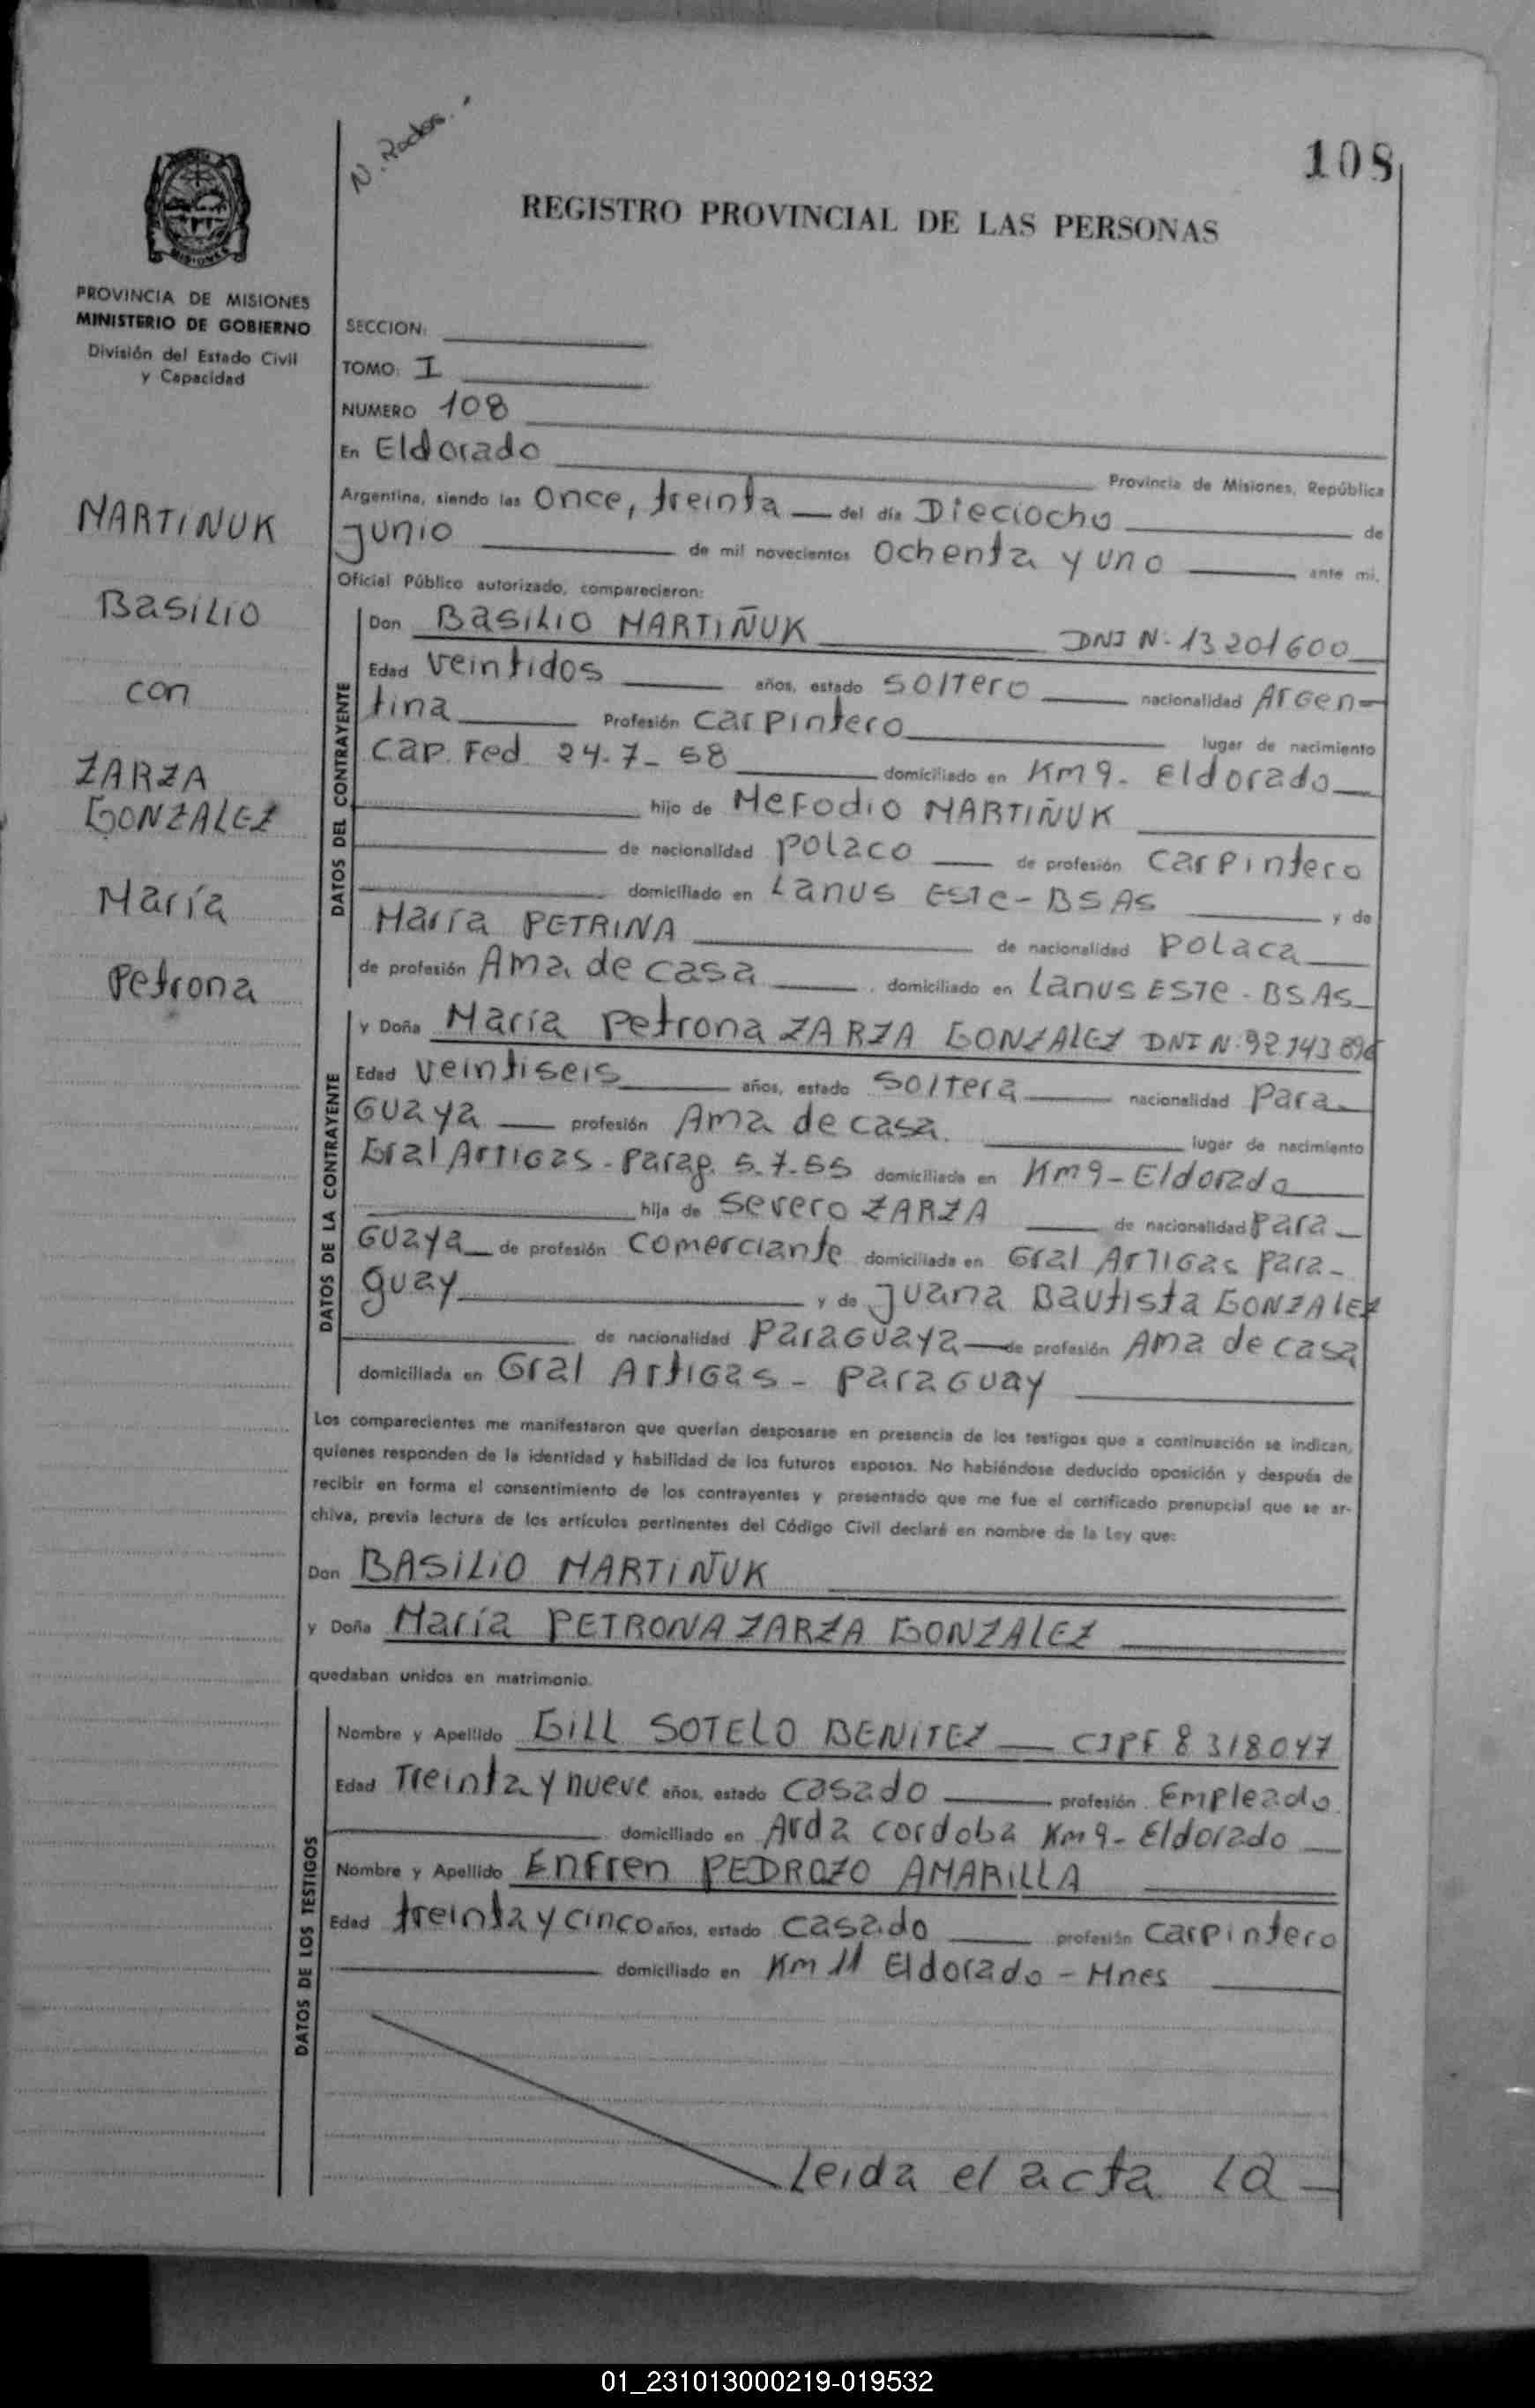 N. Rodas.
108
REGISTRO PROVINCIAL DE LAS PERSONAS
MISIONES
PROVINCIA DE MISIONES
MINISTERIO DE GOBIERNO
División del Estado Civil
y Capacidad
MARTINUK
Basilio
con
ZARZA
GONZALEZ
María
Petrona
SECCION:
TOMO: I
NUMERO 108
En Eldorado Provincia de Misiones, República
Argentina, siendo las Once, treinta del día Dieciocho de
junio de mil novecientos ochenta y uno ante mi,
Oficial Público autorizado, comparecieron:
DATOS DEL CONTRAYENTE
Don Basilio MARTIÑUK DNI N. 13 201 600
Edad veintidos años, estado soltero nacionalidad Argen-
tina Profesión carpintero lugar de nacimiento
Cap. Fed. 24-7-58 domiciliado en Km 9- Eldorado
hijo de Mefodio MARTIÑUK
de nacionalidad polaco de profesión carpintero
domiciliado en Lanus Este - BS AS y de
María PETRINA de nacionalidad polaca
de profesión Ama de casa, domiciliado en Lanus ESTE - BS AS
DATOS DE LA CONTRAYENTE
y Doña María Petrona ZARZA GONZALEZ DNI N. 92 143 896
Edad veintiseis años, estado soltera nacionalidad para-
guaya profesión Ama de casa. lugar de nacimiento
Gral Artigas - Parag. 5-7-55 domiciliada en Km 9- Eldorado
hija de Severo ZARZA de nacionalidad para-
guaya de profesión comerciante domiciliada en Gral Artigas Para-
guay y de Juana Bautista GONZALEZ
de nacionalidad paraguaya de profesión Ama de casa
domiciliada en Gral Artigas - Paraguay
Los comparecientes me manifestaron que querían desposarse en presencia de los testigos que a continuación se indican,
quienes responden de la identidad y habilidad de los futuros esposos. No habiéndose deducido oposición y después de
recibir en forma el consentimiento de los contrayentes y presentado que me fue el certificado prenupcial que se ar-
chiva, previa lectura de los artículos pertinentes del Código Civil declaré en nombre de la Ley que:
Don BASILIO MARTIÑUK
y Doña María PETRONA ZARZA GONZALEZ
quedaban unidos en matrimonio.
DATOS DE LOS TESTIGOS
Nombre y Apellido GILL SOTELO BENITEZ CIPF 8 318047
Edad Treinta y nueve años, estado casado profesión Empleado.
domiciliado en Avda cordoba Km 9- Eldorado
Nombre y Apellido Enfren PEDROZO AMARILLA
Edad treinta y cinco años, estado casado profesión carpintero
domiciliado en Km 11 Eldorado - Mnes
Leida el acta la
01_231013000219-019532